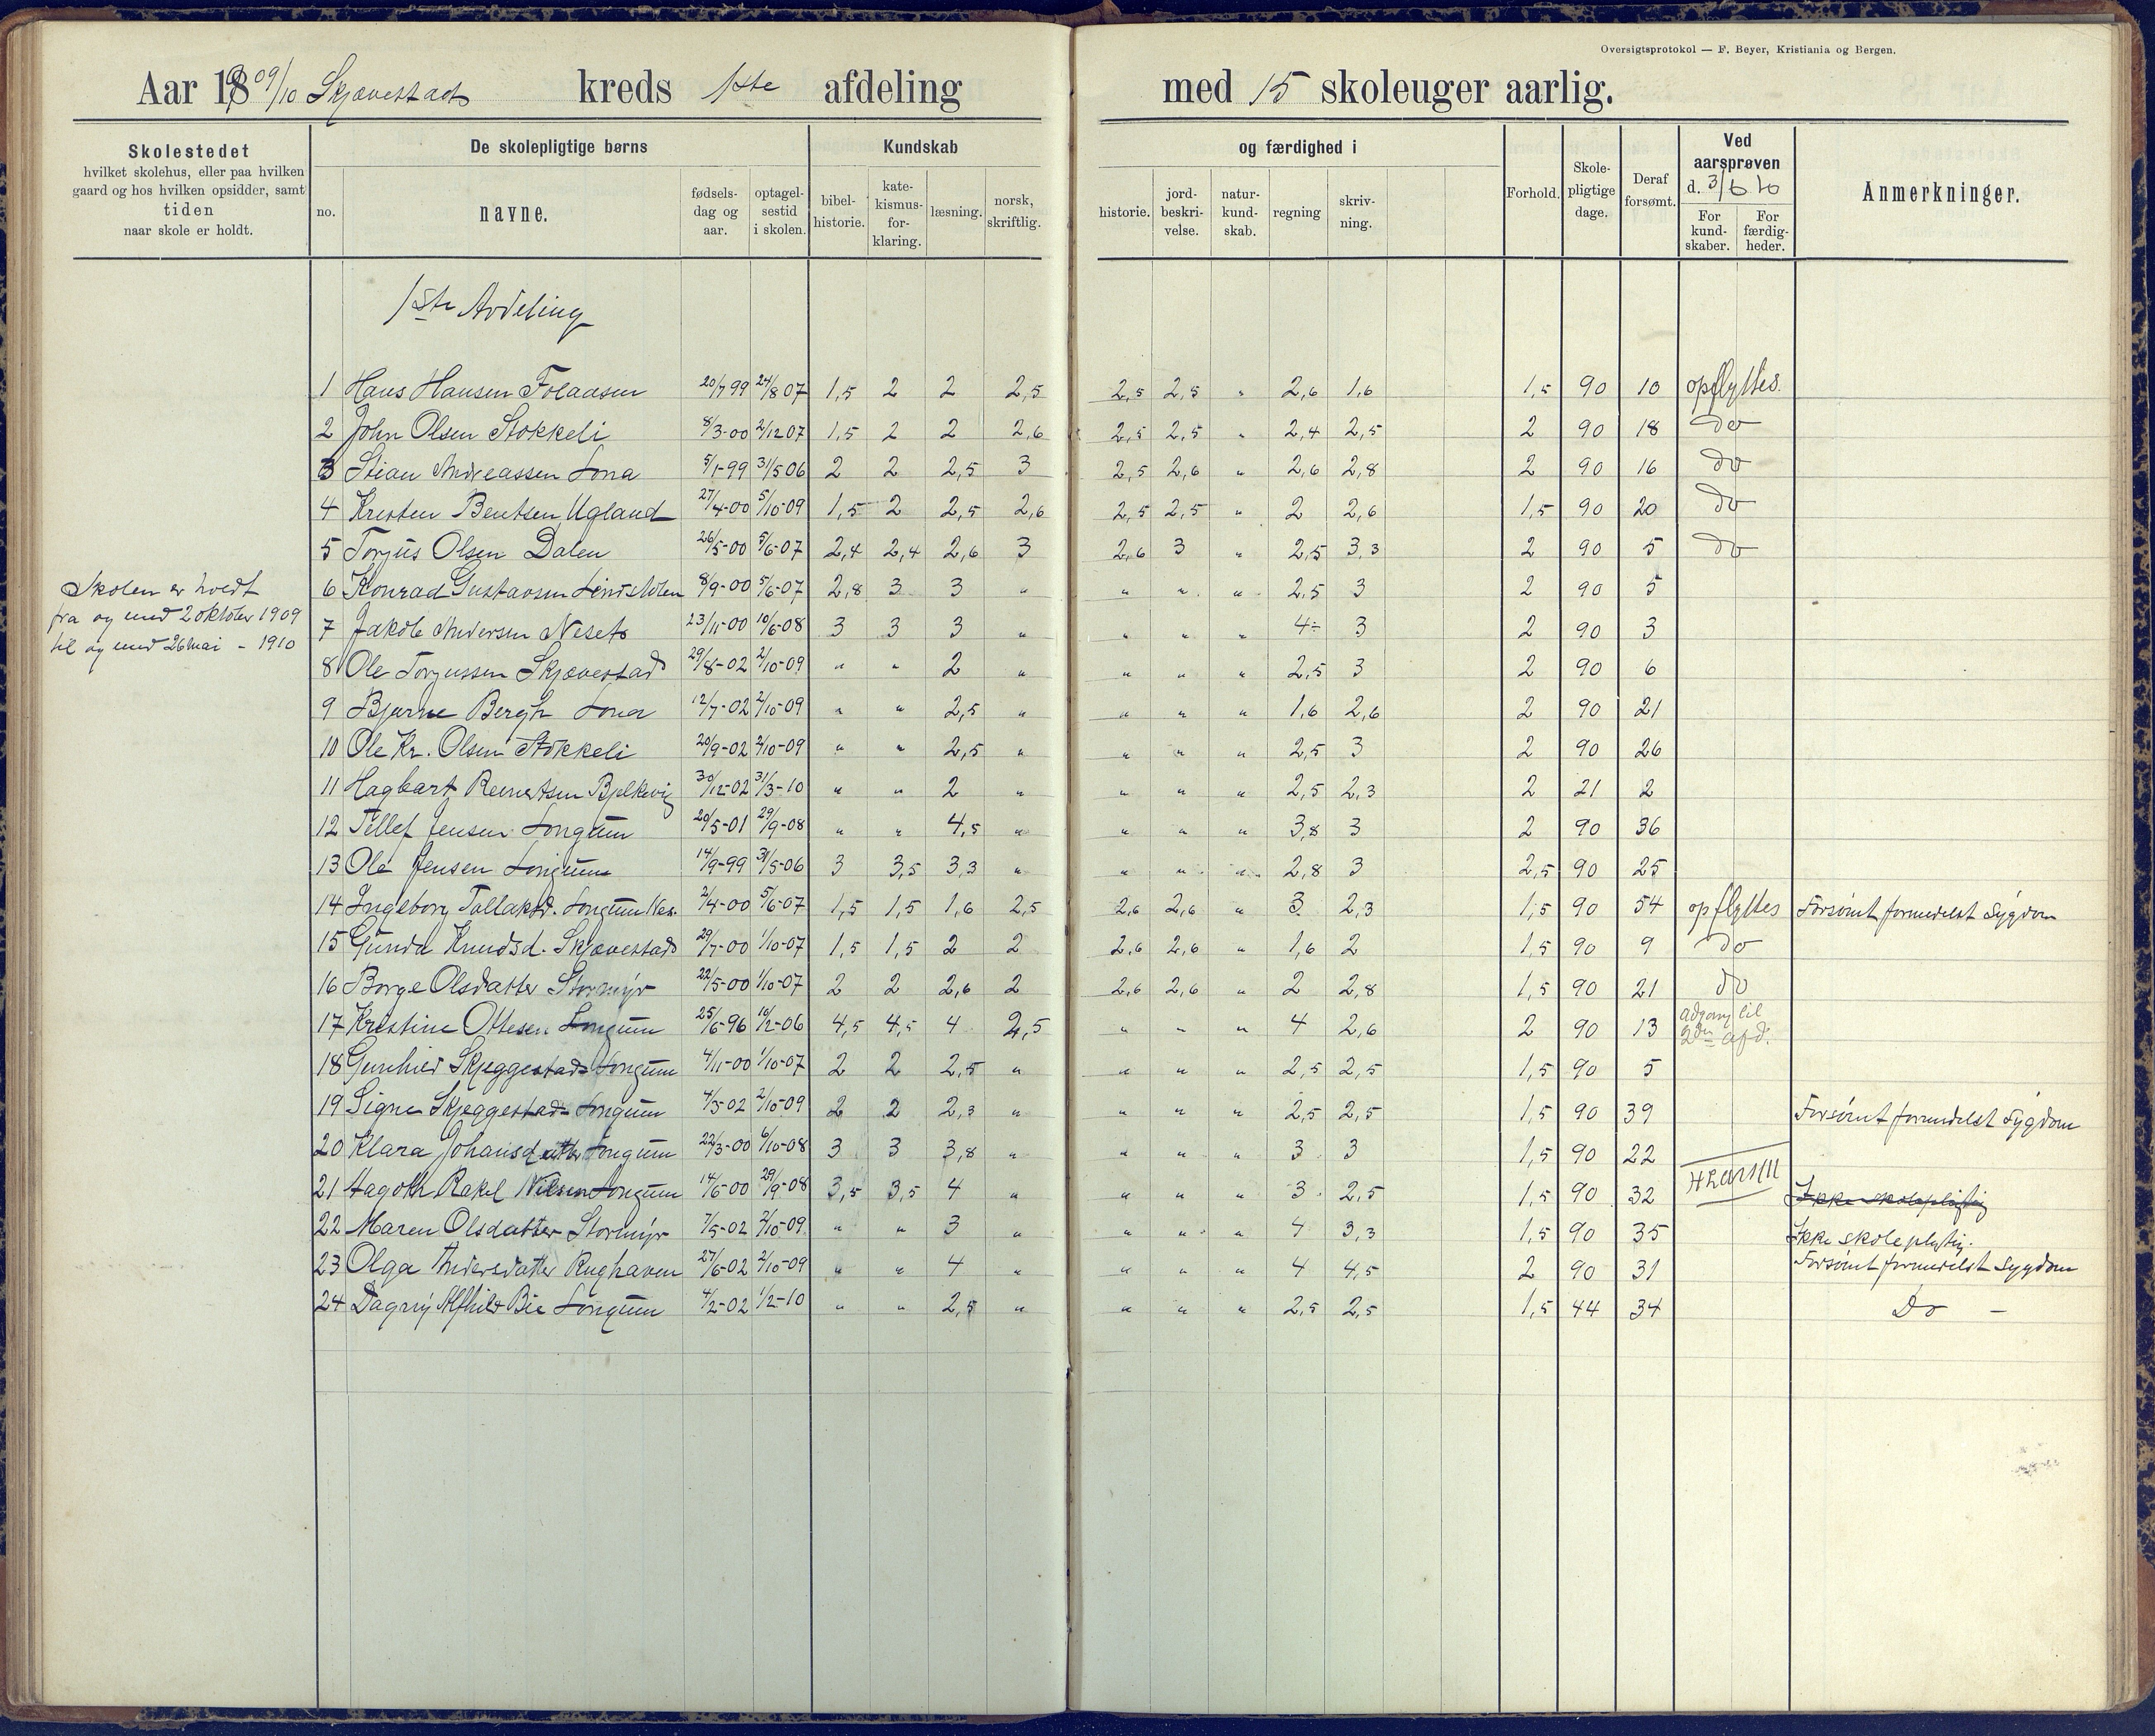 Oversigtsprotokol — F. Beyer, Kristiania og Bergen.
Aar 1909/10 Skjævestads kreds 1ste afdeling med 15 skoleuger aarlig.
Skolestedet hvilket skolehus, eller paa hvilken gaard og hos hvilken opsidder, samt tiden naar skole er holdt.
De skolepligtige børns
no. navne. fødsels-dag og aar. optagel-sestid i skolen.
Kundskab og færdighed i
bibel-historie. kate-kismus-for-klaring. læsning. norsk, skriftlig. historie. jord-beskri-velse. natur-kund-skab. regning skriv-ning.
Forhold. Skole-pligtige dage. Deraf forsømt.
Ved aarsprøven d. 3/6 10
For kund-skaber. For færdig-heder.
Anmerkninger.
1ste Avdeling
1 Hans Hansen Folaasen 20/7 99 24/8 07 1,5 2 2 2,5 2,5 2,5 " 2,6 1,6 1,5 90 10 opflyttes.
2 John Olsen Stokkeli 8/3-00 2/12 07 1,5 2 2 2,6 2,5 2,5 " 2,4 2,5 2 90 18 do
3 Stian Andreassen Lona 5/1-99 31/5 06 2 2 2,5 3 2,5 2,6 " 2,6 2,8 2 90 16 do
4 Kresten Bentsen Ugland 27/4-00 5/10-09 1,5 2 2,5 2,6 2,5 2,5 " 2 2,6 1,5 90 20 do
5 Torjus Olsen Dalen 26/5-00 5/6-07 2,4 2,4 2,6 3 2,6 3 " 2,5 3,3 2 90 5 do
Skolen er holdt
fra og med 2 oktober 1909
til og med 26 mai - 1910
6 Konrad Gustavsen Lindstolen 8/9-00 5/6-07 2,8 3 3 " " " " 2,5 3 2 90 5
7 Jakob Andersen Neset 23/11-00 10/6-08 3 3 3 " " " " 4÷ 3 2 90 3
8 Ole Torjussen Skjævestad 29/8-02 2/10-09 " " 2 " " " " 2,5 3 2 90 6
9 Bjarne Bergh Lona 12/7-02 2/10-09 " " 2,5 " " " " 1,6 2,6 2 90 21
10 Ole Kr. Olsen Stokkeli 20/9-02 2/10-09 " " 2,5 " " " " 2,5 3 2 90 26
11 Hagbart Reinertsen Bjelkevig 30/12-02 31/3-10 " " 2 " " " " 2,5 2,3 2 21 2
12 Tellef Jensen Longum 20/5-01 29/9-08 " " 4,5 " " " " 3,8 3 2 90 36
13 Ole Jensen Longum 14/9-99 31/5-06 3 3,5 3,3 " " " " 2,8 3 2,5 90 25
14 Ingeborg Tallaksd. Longum Nes. 2/4-00 5/6-07 1,5 1,5 1,6 2,5 2,6 2,6 " 3 2,3 1,5 90 54 opflyttes Forsømt formedelst Sygdom
15 Gunda Knudsd. Skjævestad 29/7-00 1/10-07 1,5 1,5 2 2 2,6 2,6 " 1,6 2 1,5 90 9 do
16 Borge Olsdatter Stormyr 22/5-00 1/10-07 2 2 2,6 2 2,6 2,6 " 2 2,8 1,5 90 21 do
17 Kristine Ottesen Longum 25/6-96 16/2-06 4,5 4,5 4 2,5 " " " 4 2,6 2 90 13 adgang til 2den afd.
18 Gunhild Skjeggestad Longum 4/11-00 1/10-07 2 2 2,5 " " " " 2,5 2,5 1,5 90 5
19 Signe Skjeggestad Longum 4/3-02 2/10-09 2 2 2,3 " " " " 2,5 2,5 1,5 90 39 Forsømt formedelst Sygdom
20 Klara Johansdatter Longum 22/3-00 6/10-08 3 3 3,8 " " " " 3 3 1,5 90 22
21 Hagoth Rakel Nilsen Longum 14/6-00 29/9-08 3,5 3,5 4 " " " " 3 2,5 1,5 90 32 Ikke skolepligtig
22 Maren Olsdatter Stormyr 7/5-02 2/10-09 " " 3 " " " " 4 3,3 1,5 90 35 Ikke skolepligtig.
23 Olga Andersdatter Rughaven 27/6-02 2/10-09 " " 4 " " " " 4 4,5 2 90 31 Forsømt formedelst Sygdom
24 Dagny Alfhild Bie Longum 4/2-02 1/2-10 " " 2,5 " " " " 2,5 2,5 1,5 44 34 Do -